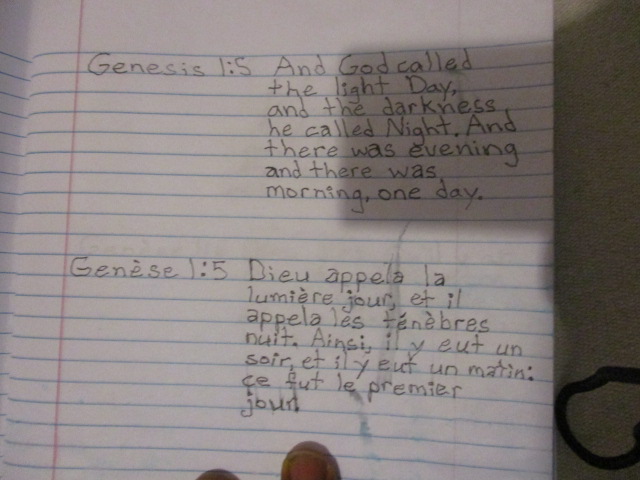 Genesis 1:5 And God called
the light Day,
and the darkness
he called Night. And
there was evening
and there was
morning, one day.
Genèse 1:5 Dieu appela la
lumière jour, et il
appela les ténèbres
nuit. Ainsi, il y eut un
soir, et il y eut un matin:
ce fut le premier
jour.